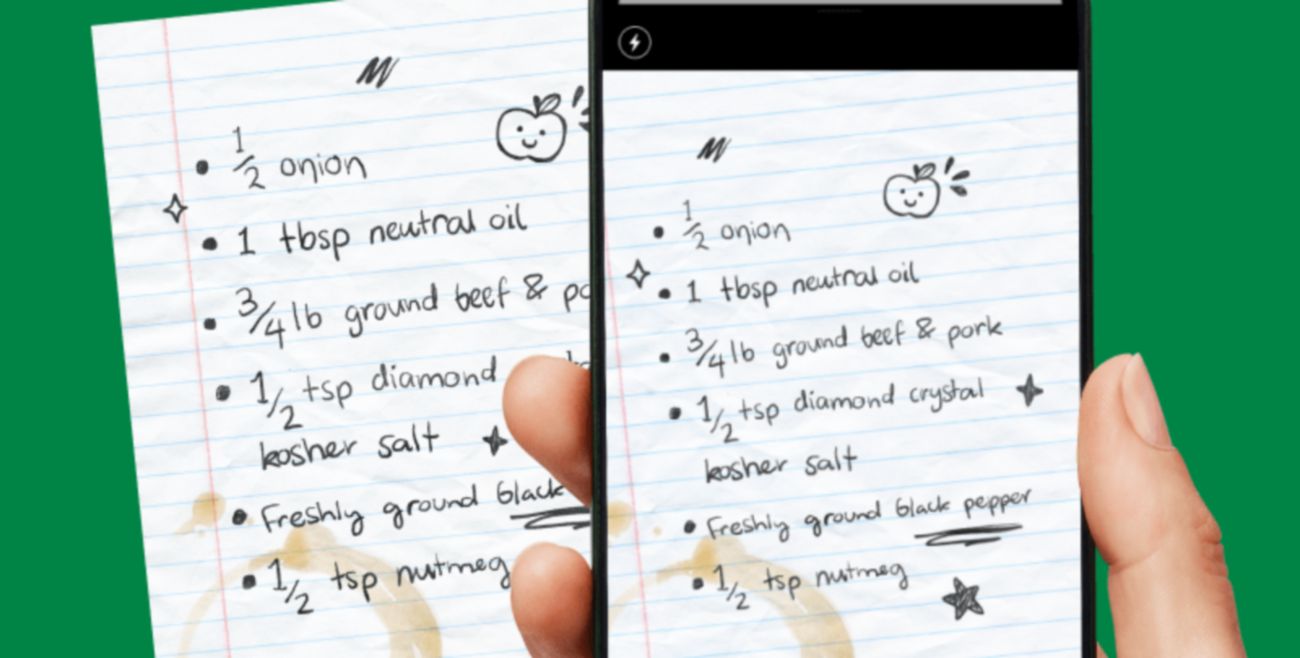 • 1/2 onion
• 1 tbsp neutral oil
• 3/4 lb ground beef & po
• 1/2 tsp diamond
kosher salt
• Freshly ground black
• 1/2 tsp nutmeg
• 1/2 onion
• 1 tbsp neutral oil
• 3/4 lb ground beef & pork
• 1/2 tsp diamond crystal
kosher salt
• Freshly ground black pepper
• 1/2 tsp nutmeg